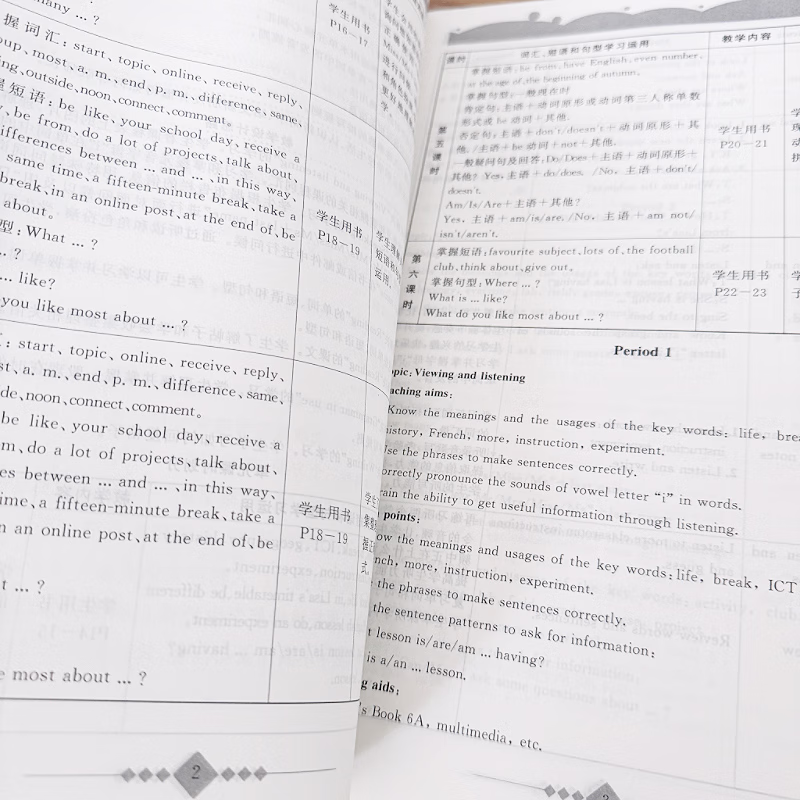 many ... ?
学生用书
P16-17
握词汇: start、topic、online、receive、reply、
oup、most、a. m.、end、p. m.、difference、same、
ng、outside、noon、connect、comment。
握短语: be like、your school day、receive a
y、be from、do a lot of projects、talk about、
differences between ... and ...、in this way、
same time、a fifteen-minute break、take a
break、in an online post、at the end of、be
about。
型: What ... ?
... ?
... like?
you like most about ... ?
学生用书
P18-19
: start、topic、online、receive、reply、
st、a. m.、end、p. m.、difference、same、
de、noon、connect、comment。
be like、your school day、receive a
m、do a lot of projects、talk about、
es between ... and ...、in this way、
ime、a fifteen-minute break、take a
n an online post、at the end of、be
t ... ?
e most about ... ?
学生用书
P18-19
2
课时
词汇、短语和句型学习运用
教学内容
第五课时
掌握短语: be from、have English、even number、
at the age of、the beginning of autumn。
掌握句型: 一般现在时
肯定句: 主语+动词原形或动词第三人称单数
形式或 be 动词+其他.
否定句: 主语+don't/doesn't+动词原形+其
他. /主语+be 动词+not+其他.
一般疑问句及回答: Do/Does+主语+动词原形+
其他? Yes, 主语+do/does. /No, 主语+don't/
doesn't.
Am/Is/Are+主语+其他?
Yes, 主语+am/is/are. /No, 主语+am not/
isn't/aren't.
学生用书
P20-21
第六课时
掌握短语: favourite subject、lots of、the football
club、think about、give out。
掌握句型: Where ... ?
What is ... like?
What do you like most about ... ?
学生用书
P22-23
Period 1
opic: Viewing and listening
aching aims:
Know the meanings and the usages of the key words: life, brea
istory, French, more, instruction, experiment.
Use the phrases to make sentences correctly.
orrectly pronounce the sounds of vowel letter "i" in words.
rain the ability to get useful information through listening.
points:
ow the meanings and usages of the key words: life, break, ICT
nch, more, instruction, experiment.
the phrases to make sentences correctly.
the sentence patterns to ask for information:
t lesson is/are/am ... having?
is a/an ... lesson.
g aids:
's Book 6A, multimedia, etc.